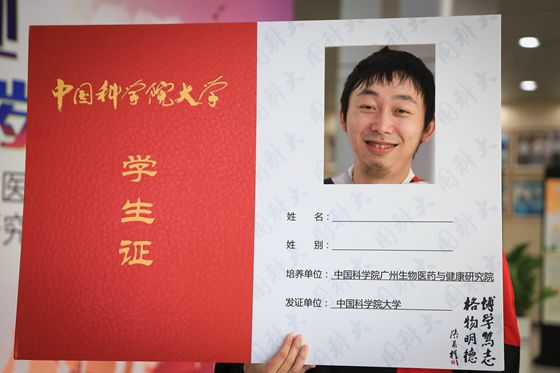 中国科学院大学
学生证
姓 名:
姓 别:
培养单位: 中国科学院广州生物医药与健康研究院
发证单位: 中国科学院大学
博学笃志
格物明德
国科大
医
究